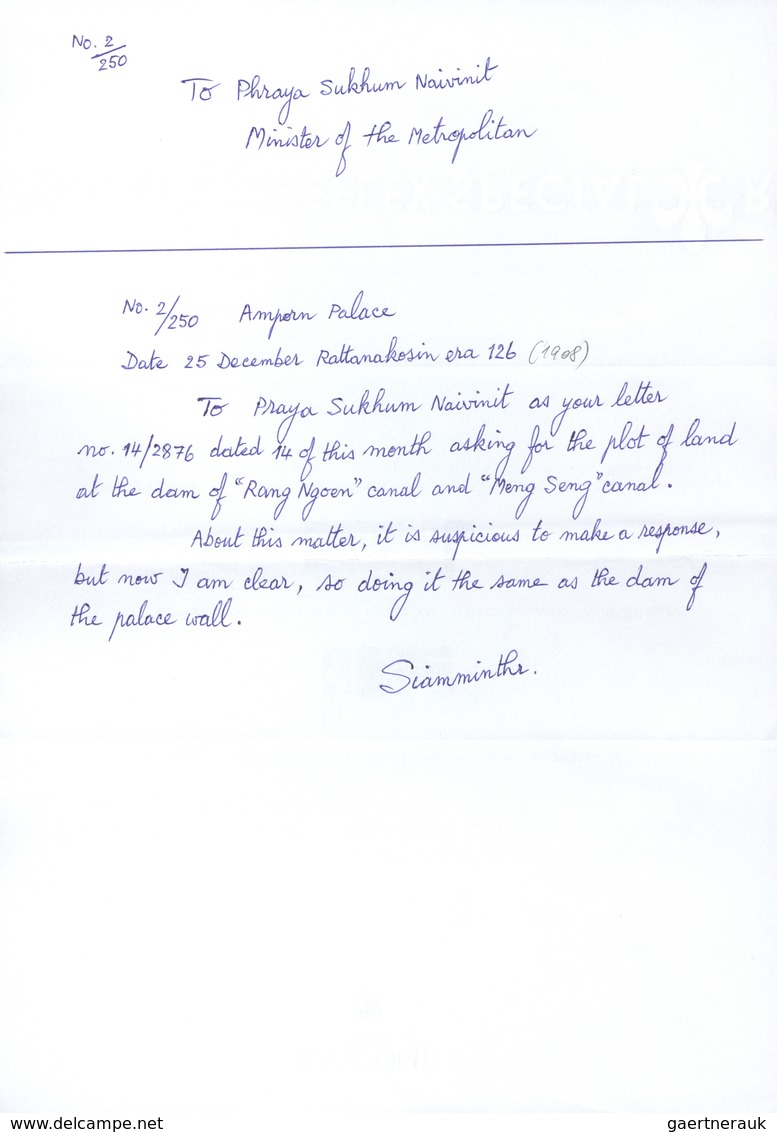 No. 2/250
To Phraya Sukhum Naivinit
Minister of the Metropolitan
No. 2/250 Amporn Palace
Date 25 December Rattanakosin era 126 (1908)
To Praya Sukhum Naivinit as your letter
no. 14/2876 dated 14 of this month asking for the plot of land
at the dam of "Rang Ngoen" canal and "Meng Seng" canal.
About this matter, it is suspicious to make a response,
but now I am clear, so doing it the same as the dam of
the palace wall.
Siamminthr.
www.delcampe.net
gaertnerauk